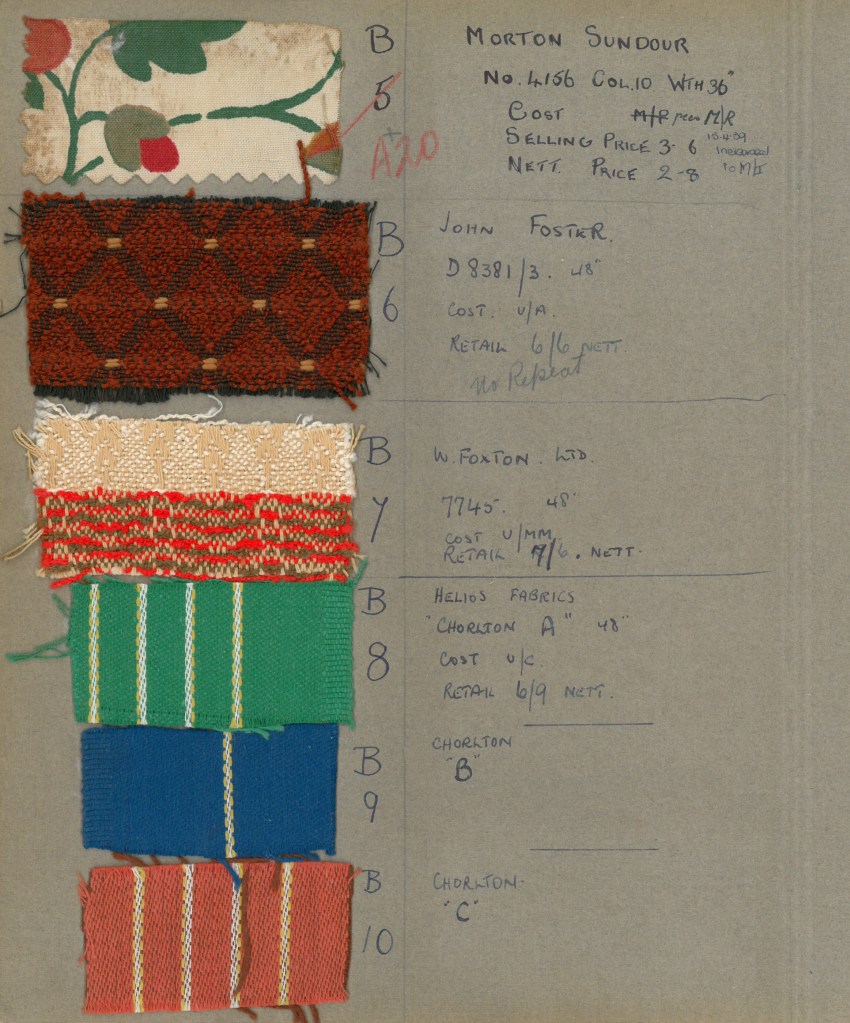 B
5
A20
MORTON SUNDOUR
No. 4156 COL.10 WTH 36"
COST M/R M/R
SELLING PRICE 3-6 15.4.59 Increased
NETT. PRICE 2-8 to M/I
B
6
JOHN FOSTER.
D 8381/3. 48"
COST. U/A.
RETAIL 6/6 NETT
No Repeat
B
7
W. FOXTON. LTD.
7745. 48"
COST U/MM
RETAIL 7/6. NETT.
B
8
HELIOS FABRICS
"CHORLTON A" 48"
COST U/C.
RETAIL 6/9 NETT.
B
9
CHORLTON
"B"
B
10
CHORLTON.
"C"